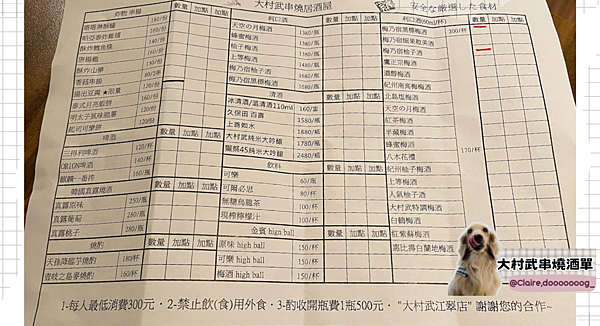 大村武串燒居酒屋
安全な厳選した食材
炸物 串揚 數量 加點 加點
塔塔淋酥雞 180/份
帕亞泰炸雞翅 200/份
酥炸鱈魚條 140/份
唐揚雞 180/份
酥炸山藥 80/份
香菇串揚 80/2串
揚出豆腐★限量 120/份
泰式月亮蝦餅 160/份
明太子風味脆薯 160/份
起司可樂餅 120/份
啤酒 數量 加點 加點
三得利啤酒 120/杯
ORION啤酒 140/杯
麒麟一番搾 160/杯
韓國真露燒酒 數量 加點 加點
真露原味 250/瓶
真露葡萄 280/瓶
真露桃子 280/瓶
燒酌 數量 加點 加點
天孫降臨芋燒酌 180/杯
壹岐之島麥燒酌 160/杯
利口酒 數量 加點 加點
天空の月梅酒 1380/瓶
蜂蜜梅酒 1380/瓶
柚子梅酒 1380/瓶
上等梅酒 1380/瓶
梅乃宿柚子酒 1480/瓶
梅乃宿黑標梅酒 1680/瓶
清酒 數量 加點 加點
冰清酒/溫清酒110ml 160/壺
久保田 百壽 1580/瓶
上善如水 1780/瓶
大村武純米大吟釀 1780/瓶
獺祭45純米大吟釀 2480/瓶
飲料 數量 加點 加點
可樂 60/瓶
可爾必思 80/杯
無糖烏龍茶 100/杯
現榨檸檬汁 100/杯
金賓 high ball 數量 加點 加點
原味 high ball 150/杯
可樂 high ball 150/杯
梅酒 high ball 160/杯
利口酒(60ml/杯) 數量 加點 加點
梅乃宿黑標梅酒 200/杯
梅乃宿細果粒美酒
梅乃宿柚子酒
鷹正宗梅酒
濃醇梅酒
紀州南高梅梅酒
北島塩梅酒
天空の月梅酒
紅茶梅酒
半藏梅酒
蜂蜜梅酒
八木花禮 170/杯
紀州柚子梅酒
上等梅酒
人氣柚子酒
大村武特調梅酒
白鶴梅酒
紅紫蘇梅酒
惠比壽白蘭地梅酒
1-每人最低消費300元・2-禁止飲(食)用外食・3-酌收開瓶費1瓶500元・ "大村武江翠店" 謝謝您的合作~
大村武串燒酒單
@Claire,dooooooog_